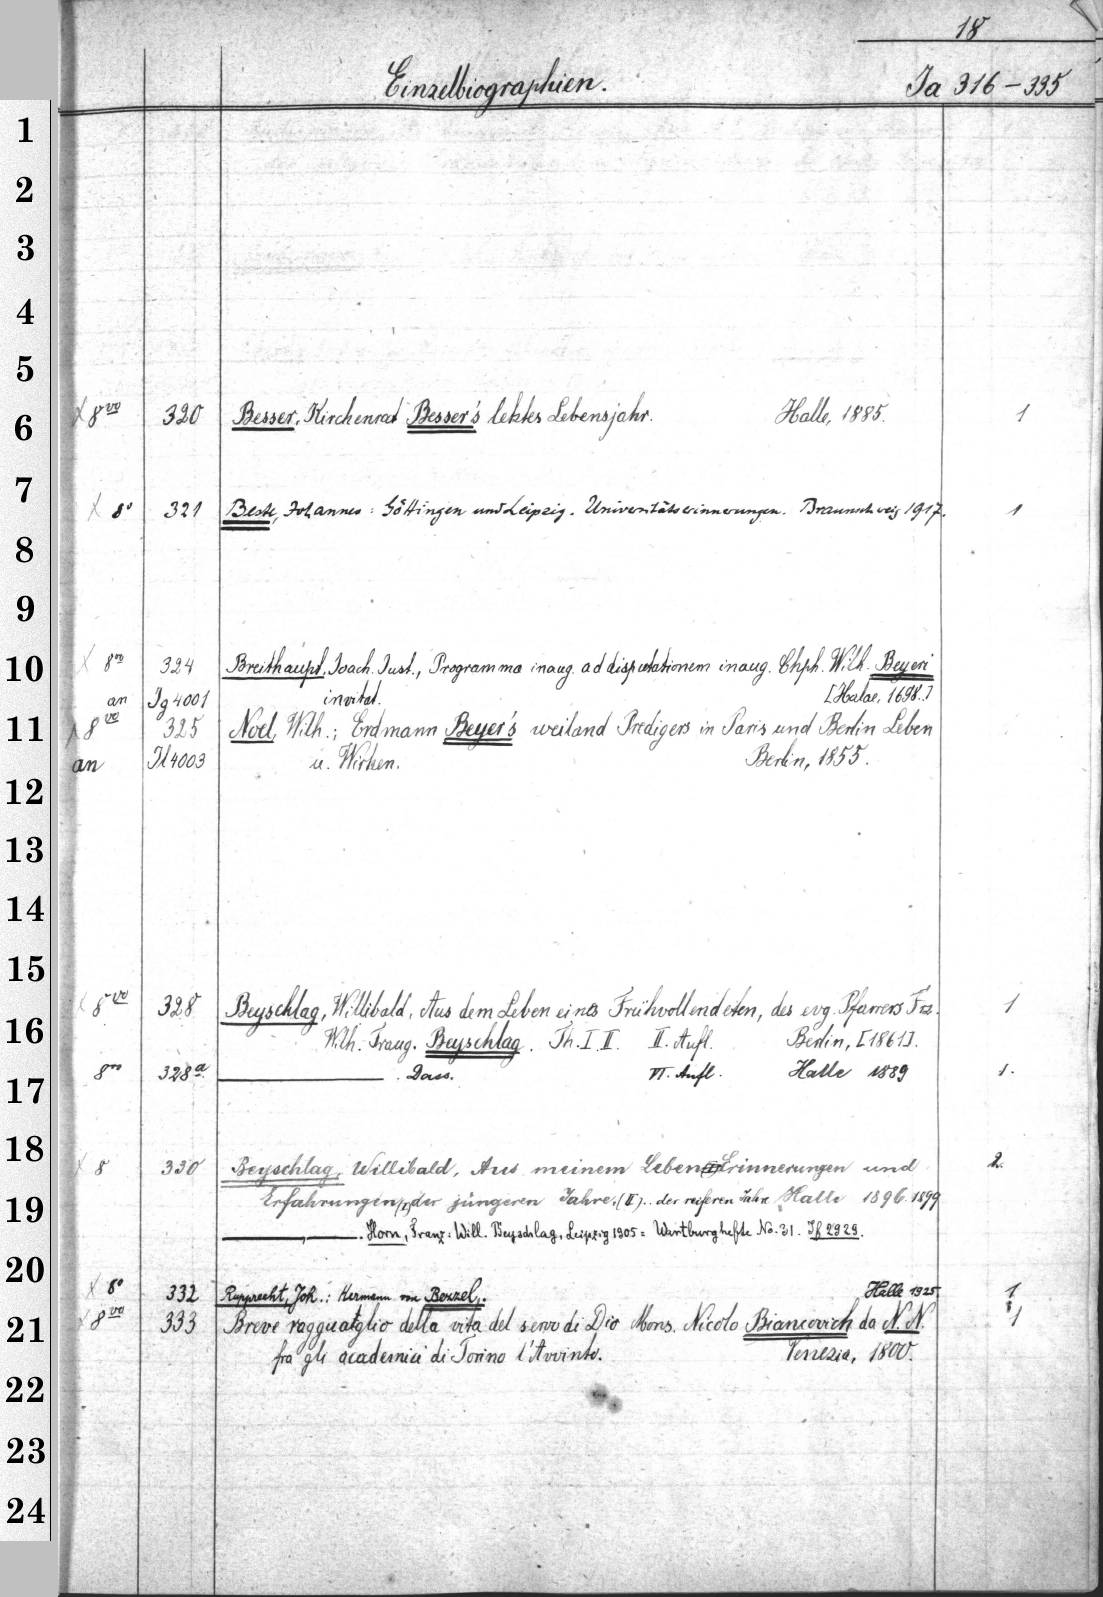 18
Einzelbiographien. Ja 316-335
1
2
3
4
5
8vo 320 Besser, Kirchenrat Besser's letztes Lebensjahr. Halle, 1885. 1
6
7
X 8° 321 Beste, Johannes: Göttingen und Leipzig. Universitätserinnerungen. Braunschweig 1917. 1
8
9
10
8vo 324 Breithaupt, Joach. Just., Programma inaug. ad disputationem inaug. Chph. Wilh. Beyeri
an Jg 4001 invitat. [Halae, 1698.]
11
8vo 325 Noel, Wilh.; Erdmann Beyer's weiland Predigers in Paris und Berlin Leben
an Jl 4003 u. Wirken. Berlin, 1855.
12
13
14
15
8vo 328 Beyschlag, Willibald, Aus dem Leben eines Frühvollendeten, des evg. Pfarrers Frz. 1
16
Wilh. Traug. Beyschlag. Th. I. II. II. Aufl. Berlin, [1861].
8vo 328a. . Dass. VI. Aufl. Halle 1889 1.
17
18
8 330 Beyschlag, Willibald, Aus meinem Leben Erinnerungen und 2.
19
Erfahrungen (I) der jüngeren Jahre. (II) .. der reiferen Jahre Halle 1896. 1899
. Horn, Franz: Will. Beyschlag, Leipzig 1905 = Wartburghefte No. 31. Jf 2929.
20
X 8° 332 Rupprecht, Joh.: Hermann von Bezzel. Halle 1925 1
21
8vo 333 Breve ragguaglio della vita del servo di Dio Mons. Nicolo Biancovich da N. N. 1
fra gli academici di Torino l'Avvinto. Venezia, 1800.
22
23
24